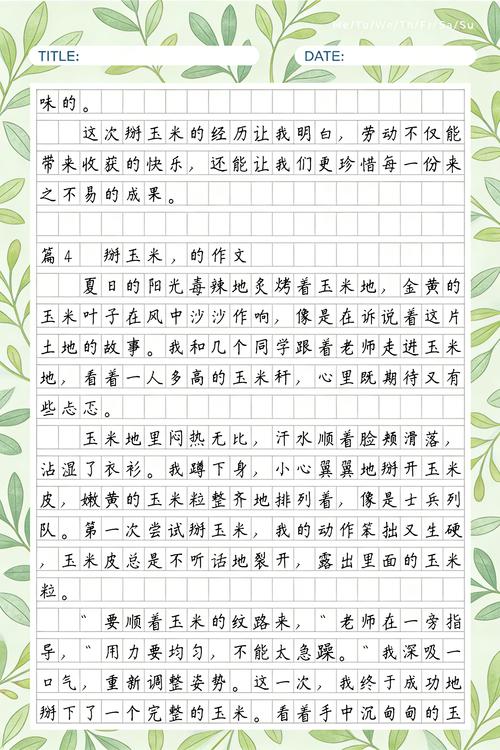 Me/Tu/We/Th/Fr/Sa/Su
TITLE: DATE:
味的。
这次掰玉米的经历让我明白，劳动不仅能
带来收获的快乐，还能让我们更珍惜每一份来
之不易的成果。
篇4 掰玉米，的作文
夏日的阳光毒辣地炙烤着玉米地，金黄的
玉米叶子在风中沙沙作响，像是在诉说着这片
土地的故事。我和几个同学跟着老师走进玉米
地，看着一人多高的玉米秆，心里既期待又有
些忐忑。
玉米地里闷热无比，汗水顺着脸颊滑落，
沾湿了衣衫。我蹲下身，小心翼翼地掰开玉米
皮，嫩黄的玉米粒整齐地排列着，像是士兵列
队。第一次尝试掰玉米，我的动作笨拙又生硬
，玉米皮总是不听话地裂开，露出里面的玉米
粒。
"要顺着玉米的纹路来，"老师在一旁指
导，"用力要均匀，不能太急躁。"我深吸一
口气，重新调整姿势。这一次，我终于成功地
掰下了一个完整的玉米。看着手中沉甸甸的玉